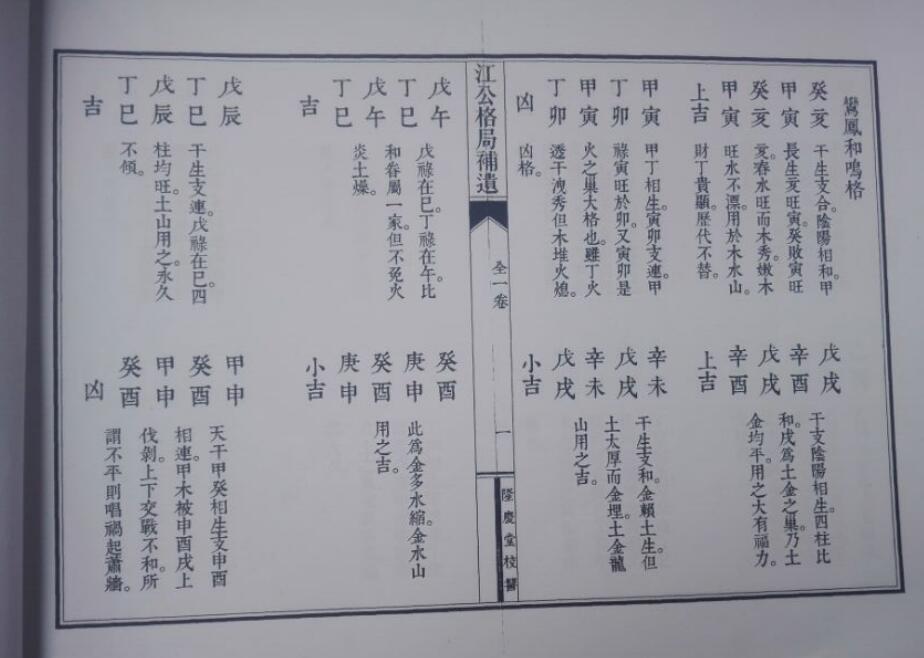 鸞鳳和鳴格
癸亥
甲寅
癸亥
甲寅
上吉
干生支合。陰陽相和。甲
長生亥旺寅。癸敗寅旺
亥。春水旺而木秀。嫩木
旺水不漂。用於木水山。
財丁貴顯。歷代不替。
戊戌
辛酉
戊戌
辛酉
上吉
干支陰陽相生。四柱比
和。戌為土金之巢。乃土
金均平。用之大有福力。
甲寅
丁卯
甲寅
丁卯
凶
甲丁相生。寅卯支連。甲
祿寅旺於卯。又寅卯是
火之巢大格也。雖丁火
透干洩秀但木堆火熄。
凶格。
辛未
戊戌
辛未
戊戌
小吉
干生支和。金賴土生。但
土太厚而金埋土金龍
山用之吉。
江公格局補遺
全一卷
一
隆慶堂校讐
戊午
丁巳
戊午
丁巳
吉
戊祿在巳。丁祿在午。比
和眷屬一家。但不免火
炎土燥。
癸酉
庚申
癸酉
庚申
小吉
此為金多水縮。金水山
用之吉。
戊辰
丁巳
戊辰
丁巳
吉
干生支連。戊祿在巳。四
柱均旺。土山用之永久
不傾。
甲申
癸酉
甲申
癸酉
凶
天干甲癸相生支申酉
相連。甲木被申酉戌上
伐剝。上下交戰不和。所
謂不平則唱禍起蕭牆。